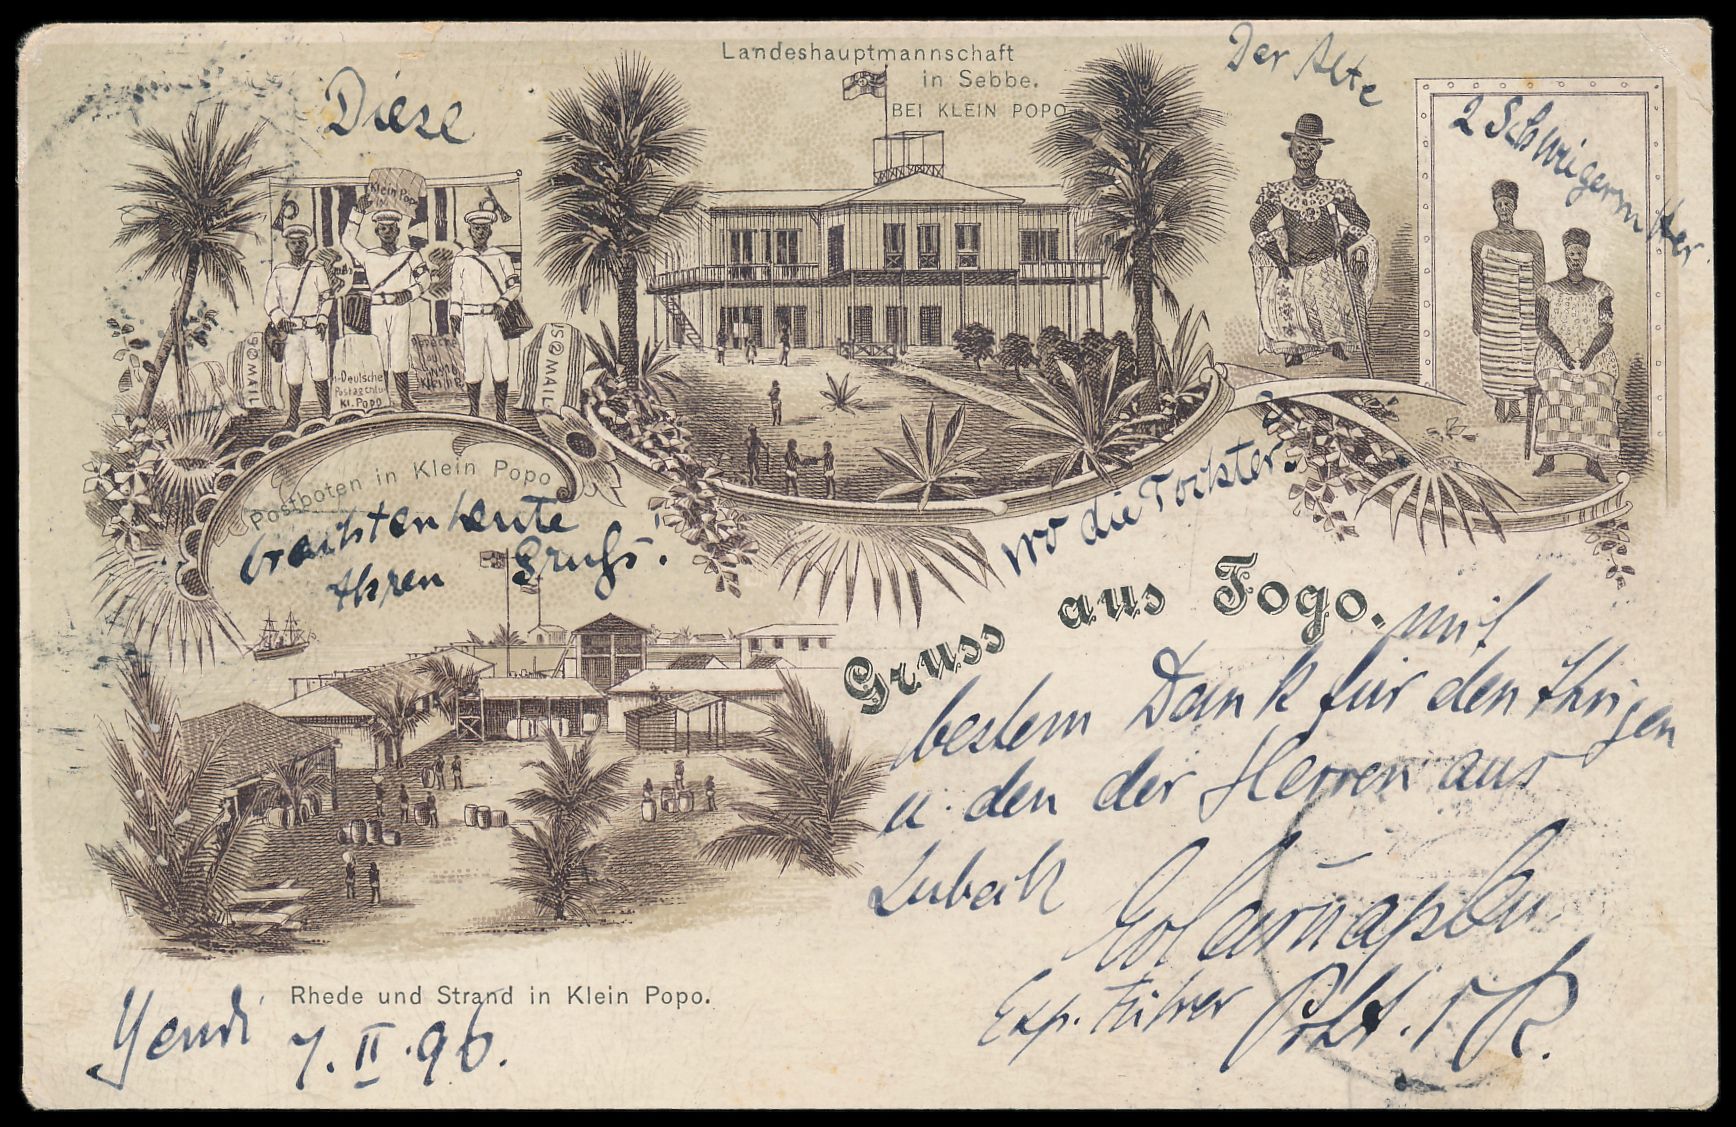 Landeshauptmannschaft
in Sebbe.
BEI KLEIN POPO
Der Alte
2 Schwiegermütter
Diese
Klein Popo
MAIL
MAIL
Deutsche
Kl. Popo
Klein P.
Postboten in Klein Popo
brachten heute
Ihren Gruß.
wo die Tochter
Gruss aus Togo.
mit
bestem Dank für den Ihrigen
u. den der Herren aus
Lubeck
Exp. Führer
Rhede und Strand in Klein Popo.
Yendi 7. II. 96.